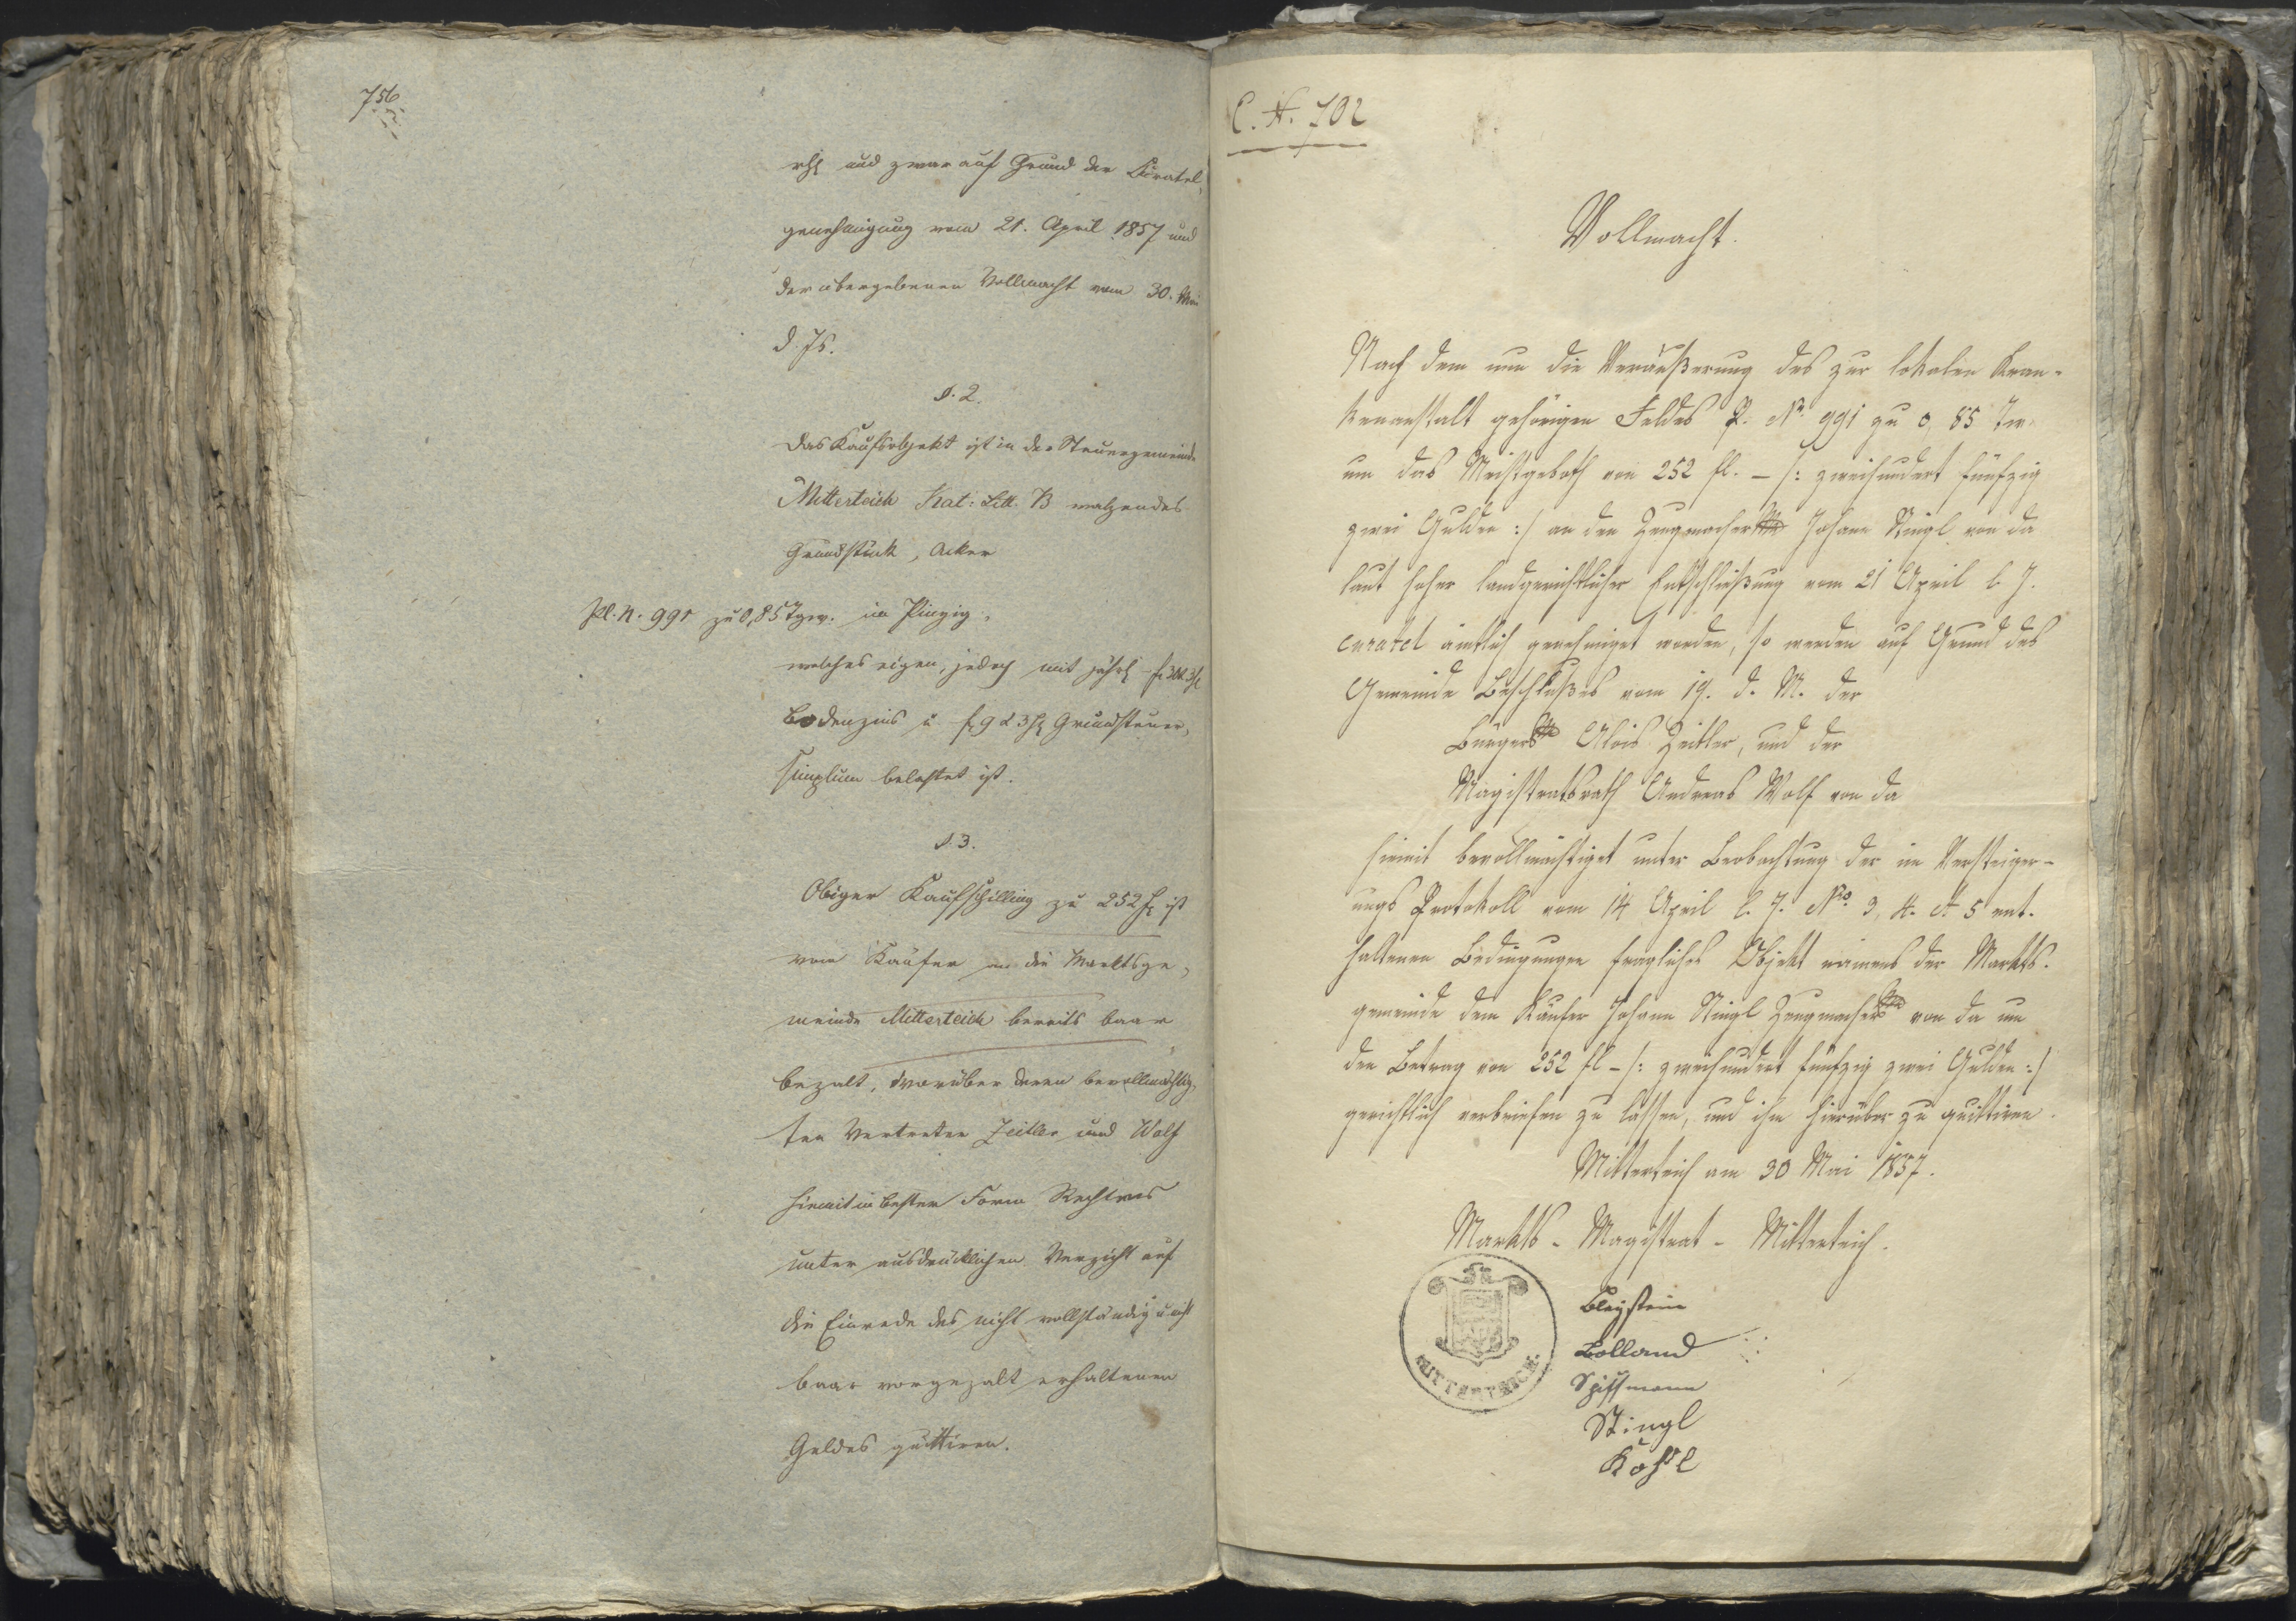 756.
rh und zwar auf Grund der Curatel,
genehmigung vom 21. April 1857 und
der übergebenen Vollmacht vom 30. Mai
d. Js.
§. 2.
Das Kaufsobjekt ist in der Steuergemeinde
Mitterteich Kat: Litt. B walzendes
Grundstück, Acker
Pl. N. 991 zu 0,85 Tgw. in
welches eigen, jedoch mit jährl
Bodenzins u f 9 d 3 hl Grundsteuer,
simplum belastet ist.
§. 3.
Obiger Kaufschilling zu 252 f ist
vom Käufer an die Marktsge,
meinde Mitterteich bereits baar
bezalt, worüber deren bevollmächtig,
ten Vertreter Zeitler und Wolf
hiemit in bester Form Rechtens
unter ausdrücklichen Verzicht auf
die Einrede des nicht vollständig u nicht
baar vorgezalt erhaltenen
Geldes quittiren.
C. N. 702
Vollmacht.
Nach dem nun die Veräußerung des zur lokalen Kran-
kenanstalt gehörigen Feldes P. Nr. 991 zu 0,85 Tw.
um das Meistgeboth von 252 fl. – /: zweihundert fünfzig
zwei Gulden :/ an den Zeugmacher Johann Stingl von da
laut hoher landgerichtlicher Entschließung vom 21 April l. J.
curatel amtlich genehmiget worden, so werden auf Grund des
Gemeinde Beschlußes vom 19. d. M. der
Bürger Alois Zeitler, und der
Magistratsrath Andreas Wolf von da
hiemit bevollmächtiget unter Beobachtung der im Versteiger-
ungs Protokoll vom 14 April l. J. No. 3, 4. & 5 ent-
haltenen Bedingungen fragliches Objekt namens der Markts-
gemeinde dem Käufer Johann Stingl Zeugmacher von da um
den Betrag von 252 fl – /: zweihundert fünfzig zwei Gulden :/
gerichtlich verbriefen zu lassen, und ihm hierüber zu quittiren.
Mitterteich am 30 Mai 1857.
Markts - Magistrat - Mitterteich.
MITTERTEICH.
Bleystein
Bolland
Stingl